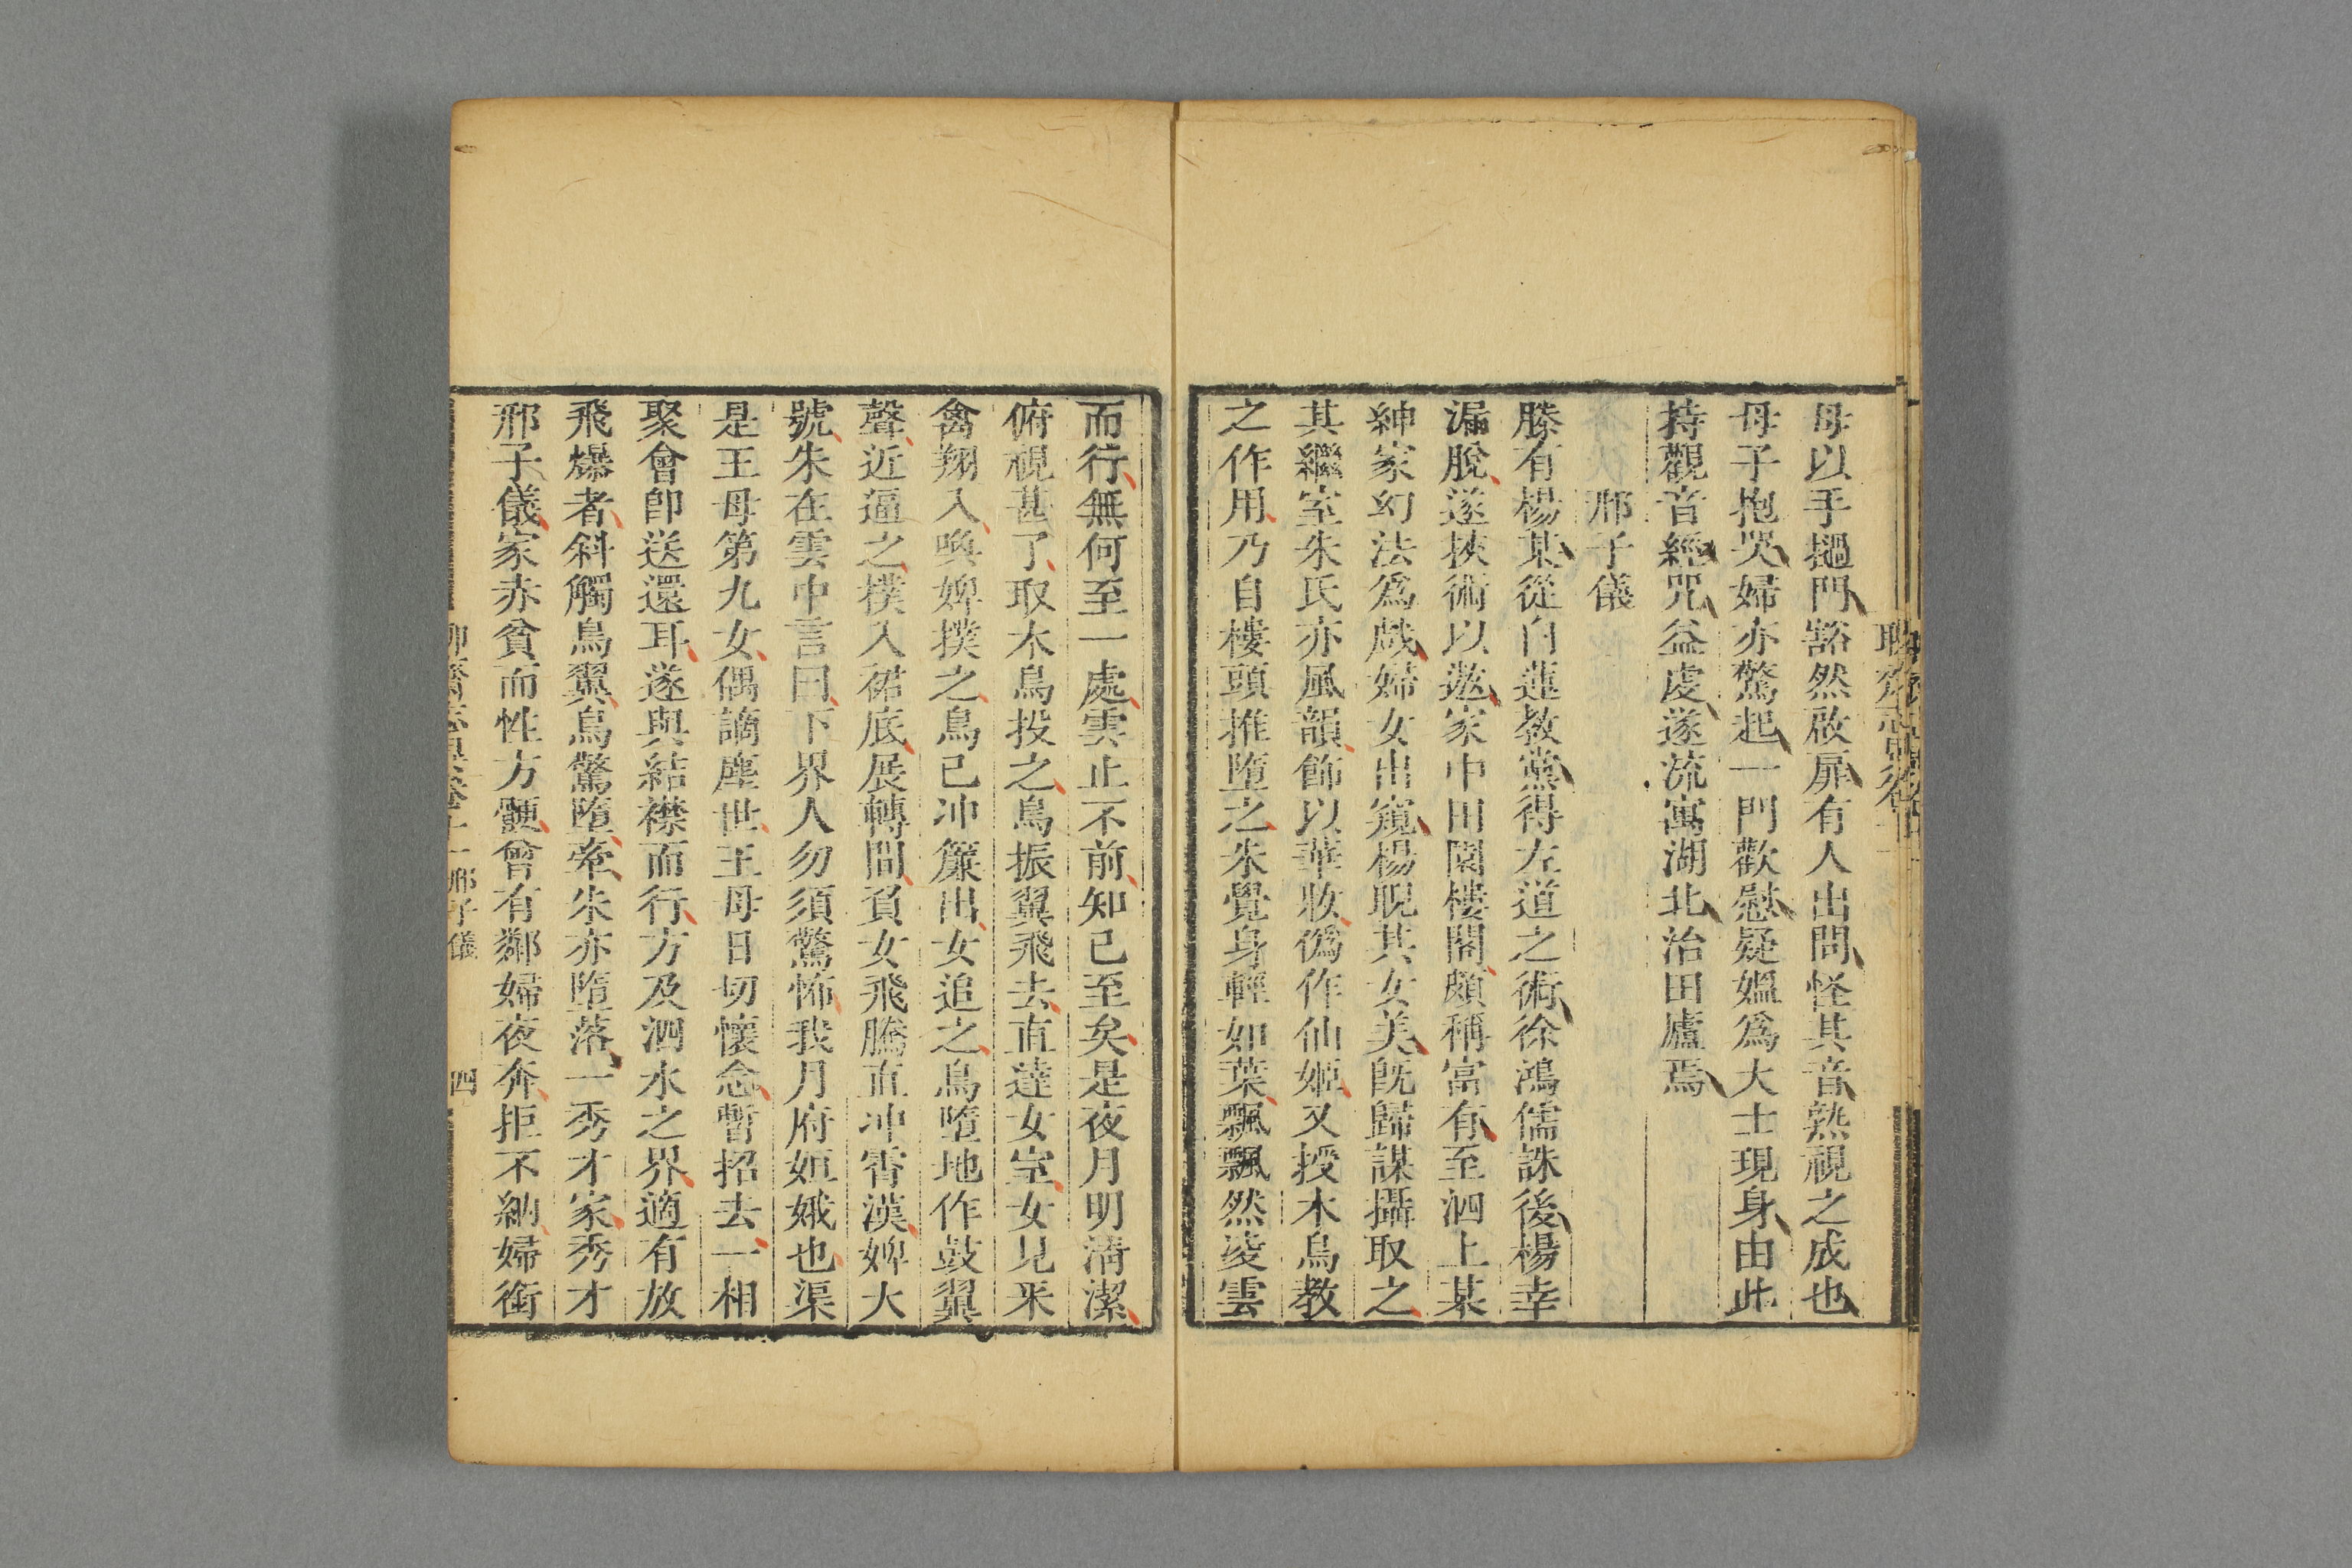 母以手撾門豁然啟扉有人出問怪其音熟視之成也
母子抱哭婦亦驚起一門歡慰疑媼爲大士現身由此
持觀音經咒益虔遂流寓湖北治田廬焉
邢子儀
滕有楊某從白蓮教黨得左道之術徐鴻儒誅後楊幸
漏脫遂挾術以遨家中田園樓閣頗稱富有至泗上某
紳家幻法爲戲婦女出窺楊睨其女美旣歸謀攝取之
其繼室朱氏亦風韻飾以華妝僞作仙姬又授木鳥教
之作用乃自樓頭推墮之朱覺身輕如葉飄飄然淩雲
而行無何至一處雲止不前知已至矣是夜月明清潔
俯視甚了取木鳥投之鳥振翼飛去直達女室女見彩
禽翔入喚婢撲之鳥已冲簾出女追之鳥墮地作鼓翼
聲近逼之撲入裙底展轉間負女飛騰直冲霄漢婢大
號朱在雲中言曰下界人勿須驚怖我月府姮娥也渠
是王母第九女偶謫塵世王母日切懷念暫招去一相
聚會卽送還耳遂與結襟而行方及泗水之界適有放
飛爆者斜觸鳥翼鳥驚墮牽朱亦墮落一秀才家秀才
邢子儀家赤貧而性方鯁曾有鄰婦夜奔拒不納婦銜
聊齋志異卷十一 邢子儀 四